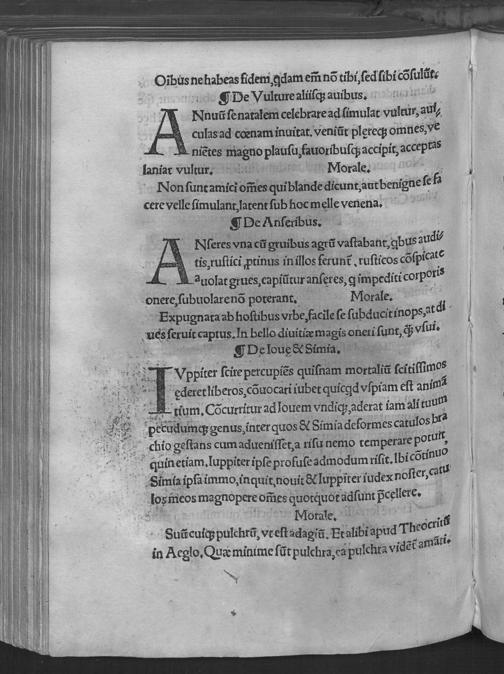 Oībus ne habeas fidem, q̇dam em̄ nō tibi, sed sibi cōsulūt.
¶ De Vulture aliisq; auibus.
ANnuū se natalem celebrare ad simulat vultur, aui⸗
culas ad cœnam inuitat. veniūt pleręq; omnes, ve
niētes magno plausu, fauoribusq; accipit, acceptas
laniat vultur. Morale.
Non sunt amici om̄es qui blande dicunt, aut benigne se fa
cere velle simulant, latent sub hoc melle venena.
¶ De Anseribus.
ANseres vna cū gruibus agrū vastabant, q̇bus audi⸗
tis, rustici, ꝓtinus in illos ferunt́, rusticos cōspicatę
auolat grues, capiūtur anseres, q impediti corporis
onere, subuolare nō poterant. Morale.
Expugnata ab hostibus vrbe, facile se subducit inops, at di
ues seruit captus. In bello diuitiæ magis oneri sunt, q̄; vsui.
¶ De Ioue & Simia.
IVppiter scire percupiēs quisnam mortaliū scitissimos
ęderet liberos, cōuocari iubet quicqd vspiam est animā
tium. Cōcurritur ad Iouem vndiq;, aderat iam alituum
pecudumq; genus, inter quos & Simia deformes catulos bra
chio gestans cum aduenisset, a risu nemo temperare potuit,
quin etiam. Iuppiter ipse profuse admodum risit. Ibi cōtinuo
Simia ipsa immo, inquit, nouit & Iuppiter iudex noster, catu
los meos magnopere om̄es quotquot adsunt p̄cellere.
Morale.
Suū cuiq; pulchrū, vt est adagiū. Et alibi apud Theocritū
in Aeglo. Quæ minime sūt pulchra, ea pulchra vidēt́ amāti.